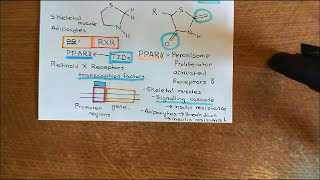 Skeletal
muscle
Adipocytes
RXR
PPARγ TZDs
PPARγ - Peroxisome
Proliferator
activated
Receptors γ
Retinoid X Receptors
transcription factors
Promoter gene
regions
- Skeletal muscles
- Signalling cascade
→ insulin resistance
- Adipocytes → breakdown
→ insulin resistance ↓
S
N
H
R
S
O
N
H
O